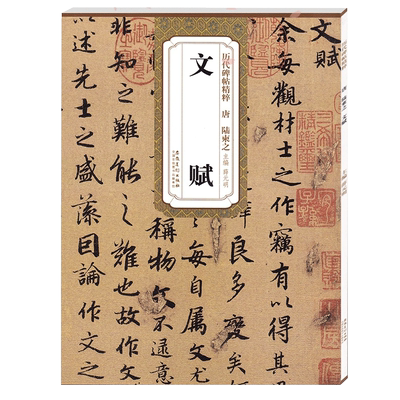 文賦
余每觀材士之作竊有以得其
良多變矣
每自属文
稱物文不逮意
非知之難能之難也故作文
以述先士之盛藻因論作文之
历代碑帖精粹 唐 陆柬之
主编 薛元明
文赋
安徽美术出版社